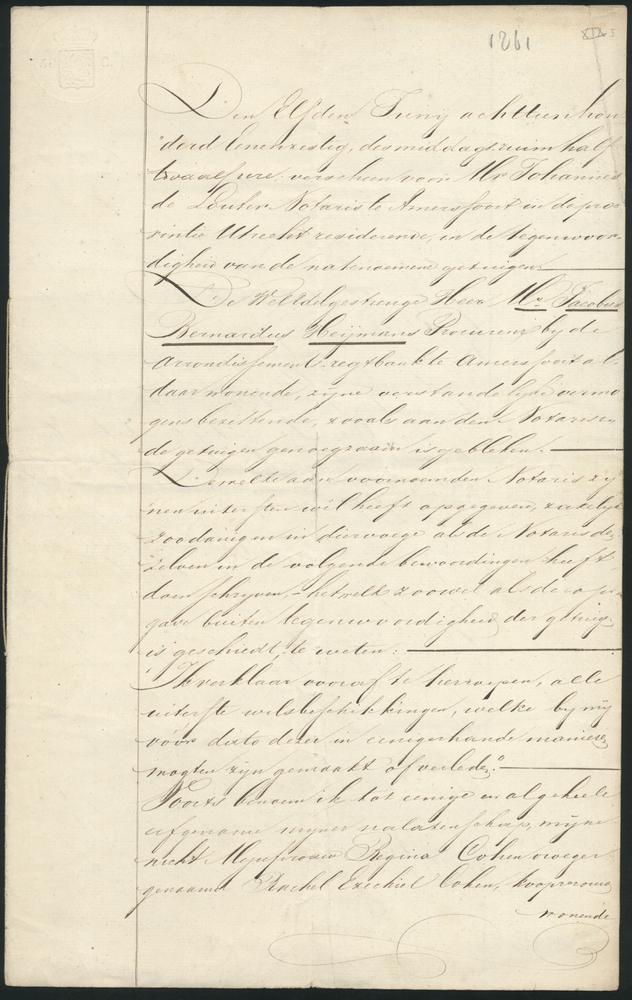 1861
XIX 5
Den Elfden Juny achttienhon
derd Eenenzestig, des middags ruim half
twaalf ure verscheen voor Mr Johannes
de Louter Notaris te Amersfoort in de pro
vintie Utrecht resideerende, in de tegenwoor
digheid van de natenoemene getuigen.
De WelEdelgestrenge Heer Mr. Jacobus
Bernardus Heijmans Procureur by de
Arrondissements regtbank te Amersfoort al-
daar wonende, zyne verstandelyke vermo
gens bezittende, zooals aan den Notaris en
de getuigen genoegzaam is gebleken.
Dewelke aan voornoemden Notaris zy
nen uitersten wil heeft opgegeven, zakelyk
zoodanig en in diervoege als de Notaris de-
zelven in de volgende bewoordingen heeft
doen schryven, hetwelk zoowel als de op
gave buiten tegenwoordigheid der getuig.
is geschiedt, te weten:
Ik verklaar vooraf te herroepen, alle
uiterste wilsbeschikkingen, welke by my
vóór dato dezer in eenigerhande manieren
mogten zyn gemaakt of verleden.
Voorts benoem ik tot eenige en algeheele
erfgename myner nalatenschap, myne
nicht Mejufvrouw Regina Cohen vroeger
genaamd Rachel Ezechiel Cohen, koopvrouw
wonende